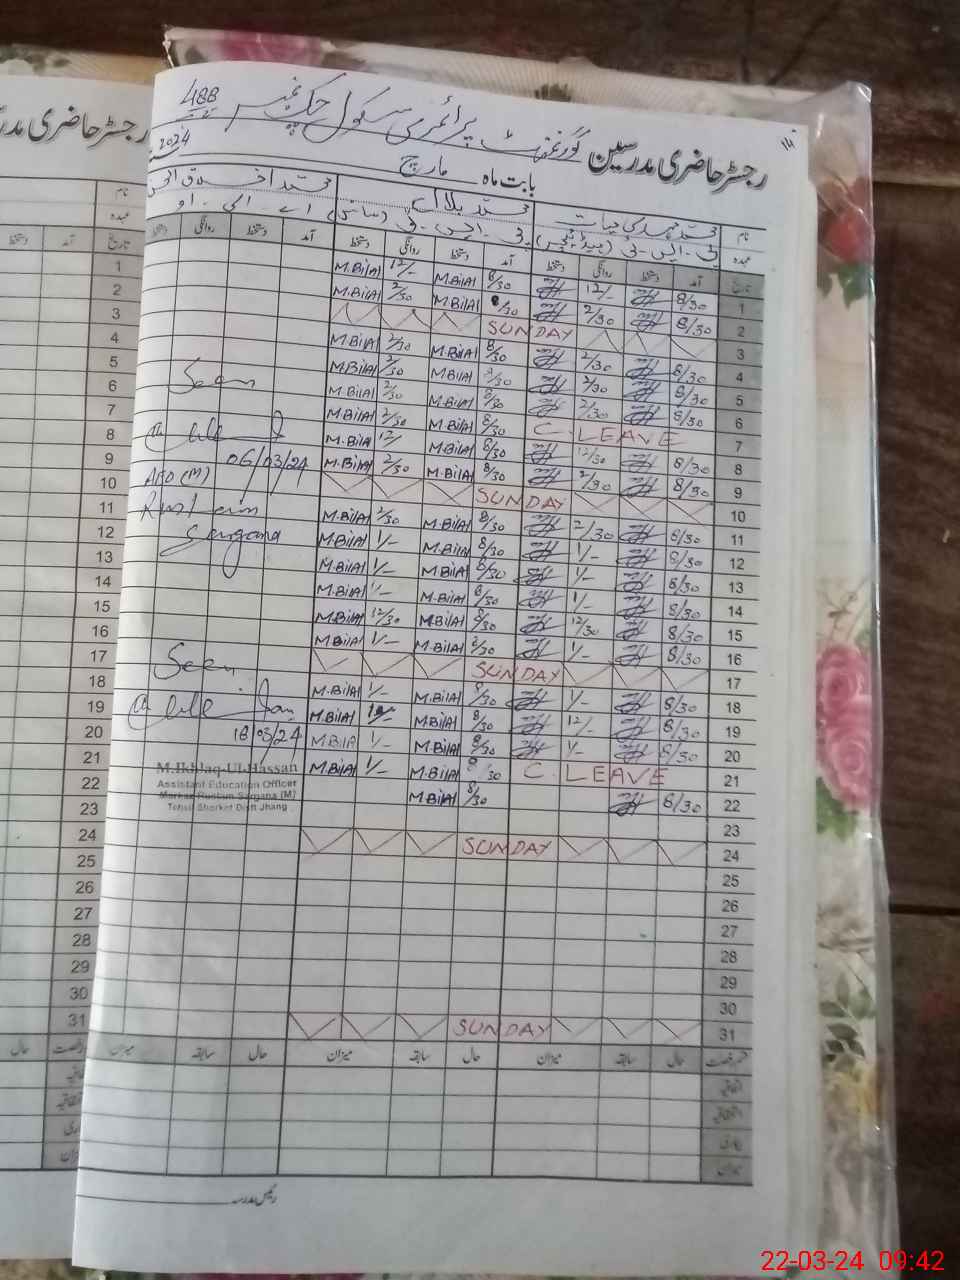 رجسٹر حاضری مدرسین گورنمنٹ پرائمری سکول چک نمبر 488
بابت ماہ مارچ 2024
نام محمد مہدی حیات محمد بلال محمد اخلاق الحسن
عہدہ پی ۔ ایس ۔ ٹی پی ۔ ایس ۔ ٹی (سائنس) اے ۔ ای ۔ او
تاریخ آمد دستخط روانگی دستخط آمد دستخط روانگی دستخط آمد دستخط روانگی دستخط
1 8/30 12/- 8/30 M.Bilal 12/- M.Bilal
2 8/30 2/30 8/30 M.Bilal 2/30 M.Bilal
3 SUNDAY
4 8/30 2/30 8/30 M.Bilal 2/30 M.Bilal
5 8/30 2/30 8/30 M.Bilal 2/30 M.Bilal
6 8/30 2/30 8/30 M.Bilal 2/30 M.Bilal
7 C. LEAVE 8/30 M.Bilal 2/30 M.Bilal
8 8/30 12/30 8/30 M.Bilal 12/ M.Bilal
9 8/30 2/30 8/30 M.Bilal 2/30 M.Bilal
10 SUNDAY
11 8/30 2/30 8/30 M.Bilal 2/30 M.Bilal
12 8/30 1/- 8/30 M.Bilal 1/- M.Bilal
13 8/30 1/- 8/30 M.Bilal 1/- M.Bilal
14 8/30 1/- 8/30 M.Bilal 1/- M.Bilal
15 8/30 12/30 8/30 M.Bilal 12/30 M.Bilal
16 8/30 1/- 8/30 M.Bilal 1/- M.Bilal
17 SUNDAY
18 8/30 1/- 8/30 M.Bilal 1/- M.Bilal
19 8/30 12/- 8/30 M.Bilal M.Bilal
20 8/30 1/- 8/30 M.Bilal 1/- M.Bilal
21 C. LEAVE 8/30 M.Bilal 1/- M.Bilal
22 8/30 8/30 M.Bilal
23
24 SUNDAY
25
26
27
28
29
30
31 SUNDAY
Seen
06/03/24
AEO (M)
Rustam
Sargana
Seen
18/03/24
M.Ikhlaq-Ul-Hassan
Assistant Education Officer
Markaz Rustum Sargana (M)
Tehsil Shorkot Distt Jhang
قسم رخصت حال سابقہ میزان حال سابقہ میزان حال سابقہ میزان
اتفاقیہ
استحقاقیہ
بیماری
میزان
رئیس مدرسہ
رجسٹر حاضری مدر
نام
عہدہ
تاریخ آمد دستخط
1
2
3
4
5
6
7
8
9
10
11
12
13
14
15
16
17
18
19
20
21
22
23
24
25
26
27
28
29
30
31
رخصت حال
22-03-24 09:42